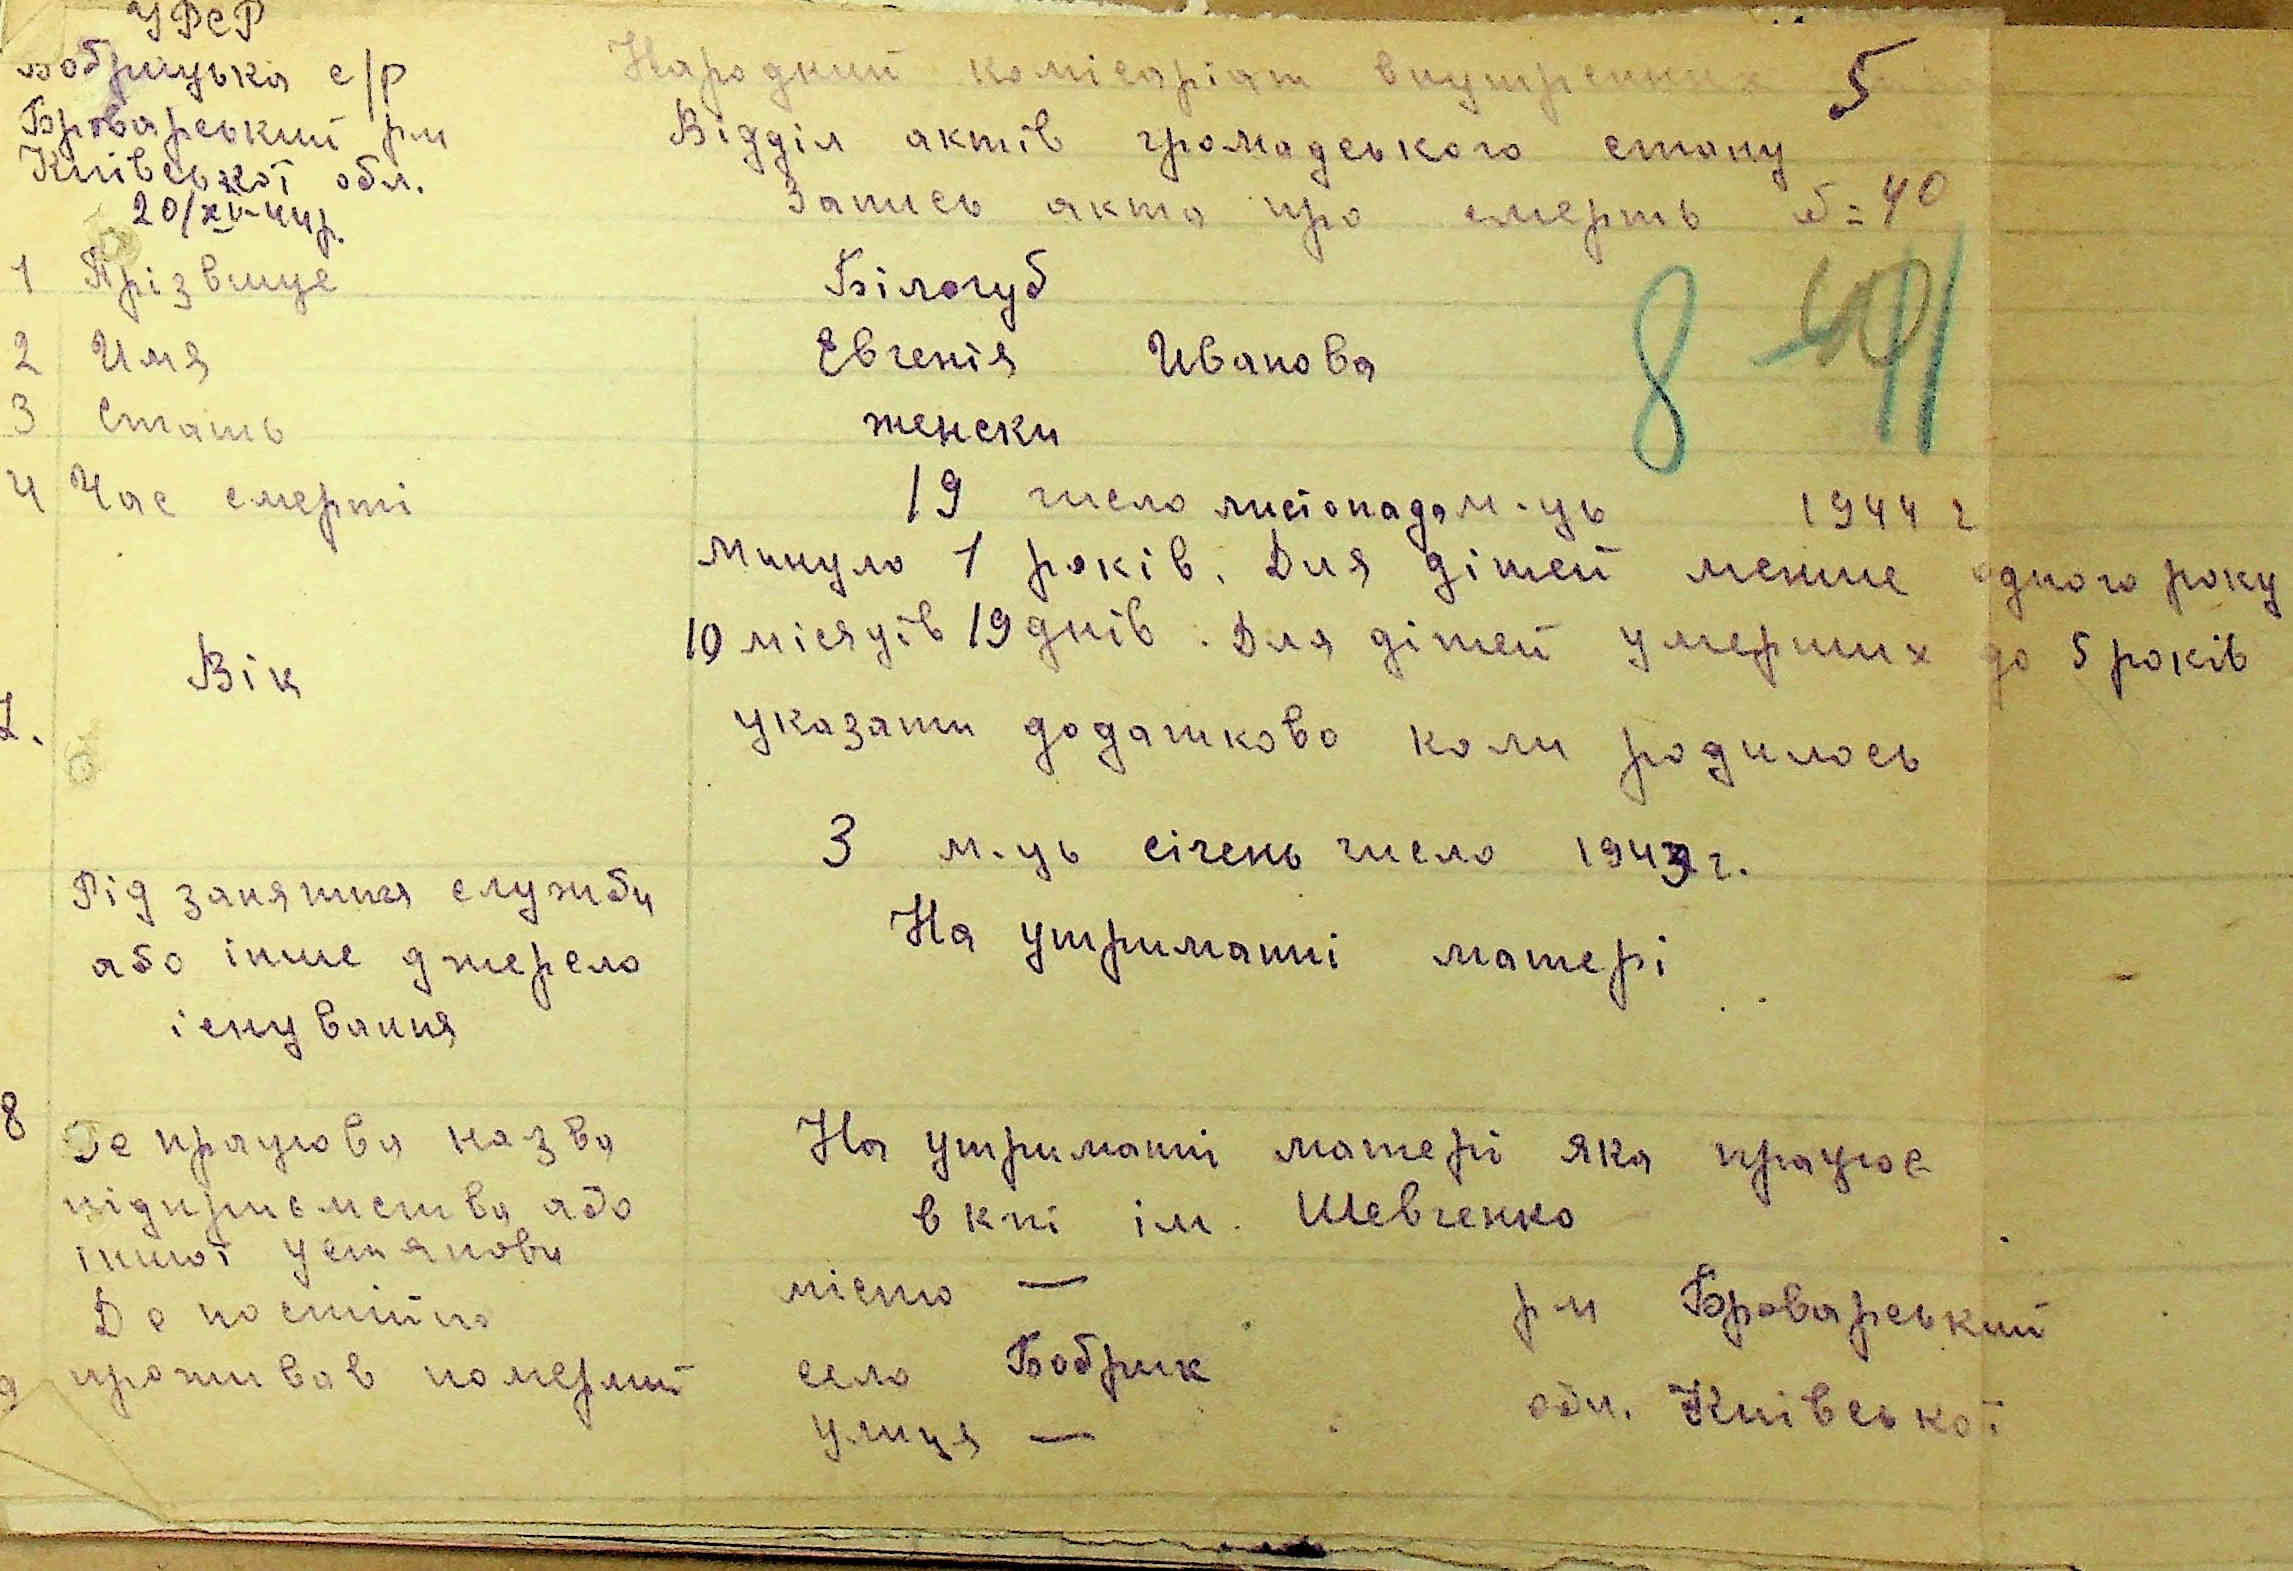 УРСР
Бобрицька с/р
Броварський р-н
Київської обл.
20/XI-44р.
Народний комісаріат внутренних 5
Відділ актів громадського стану
Запись акта про смерть №=40
8 41
1 Прізвище Білогуб
2 Имя Евгенія Иванова
3 Стать женски
4 Час смерті 19 число листопада м-ць 1944 г
минуло 1 років. Для дітей менше одного року
10 місяців 19 днів. Для дітей умерших до 5 років
Вік
указати додатково коли родилось
3 м-ць січень число 1943 г.
Рід заняття служби
або інше джерело
існування
На утриманні матері
8 Де працював назва
підприємства або
іншої установи
На утриманні матері яка працює
в кпі ім. Шевченко
Де постійно
проживав померший
місто — р-н Броварський
село Бобрик обл. Київської
улиця —